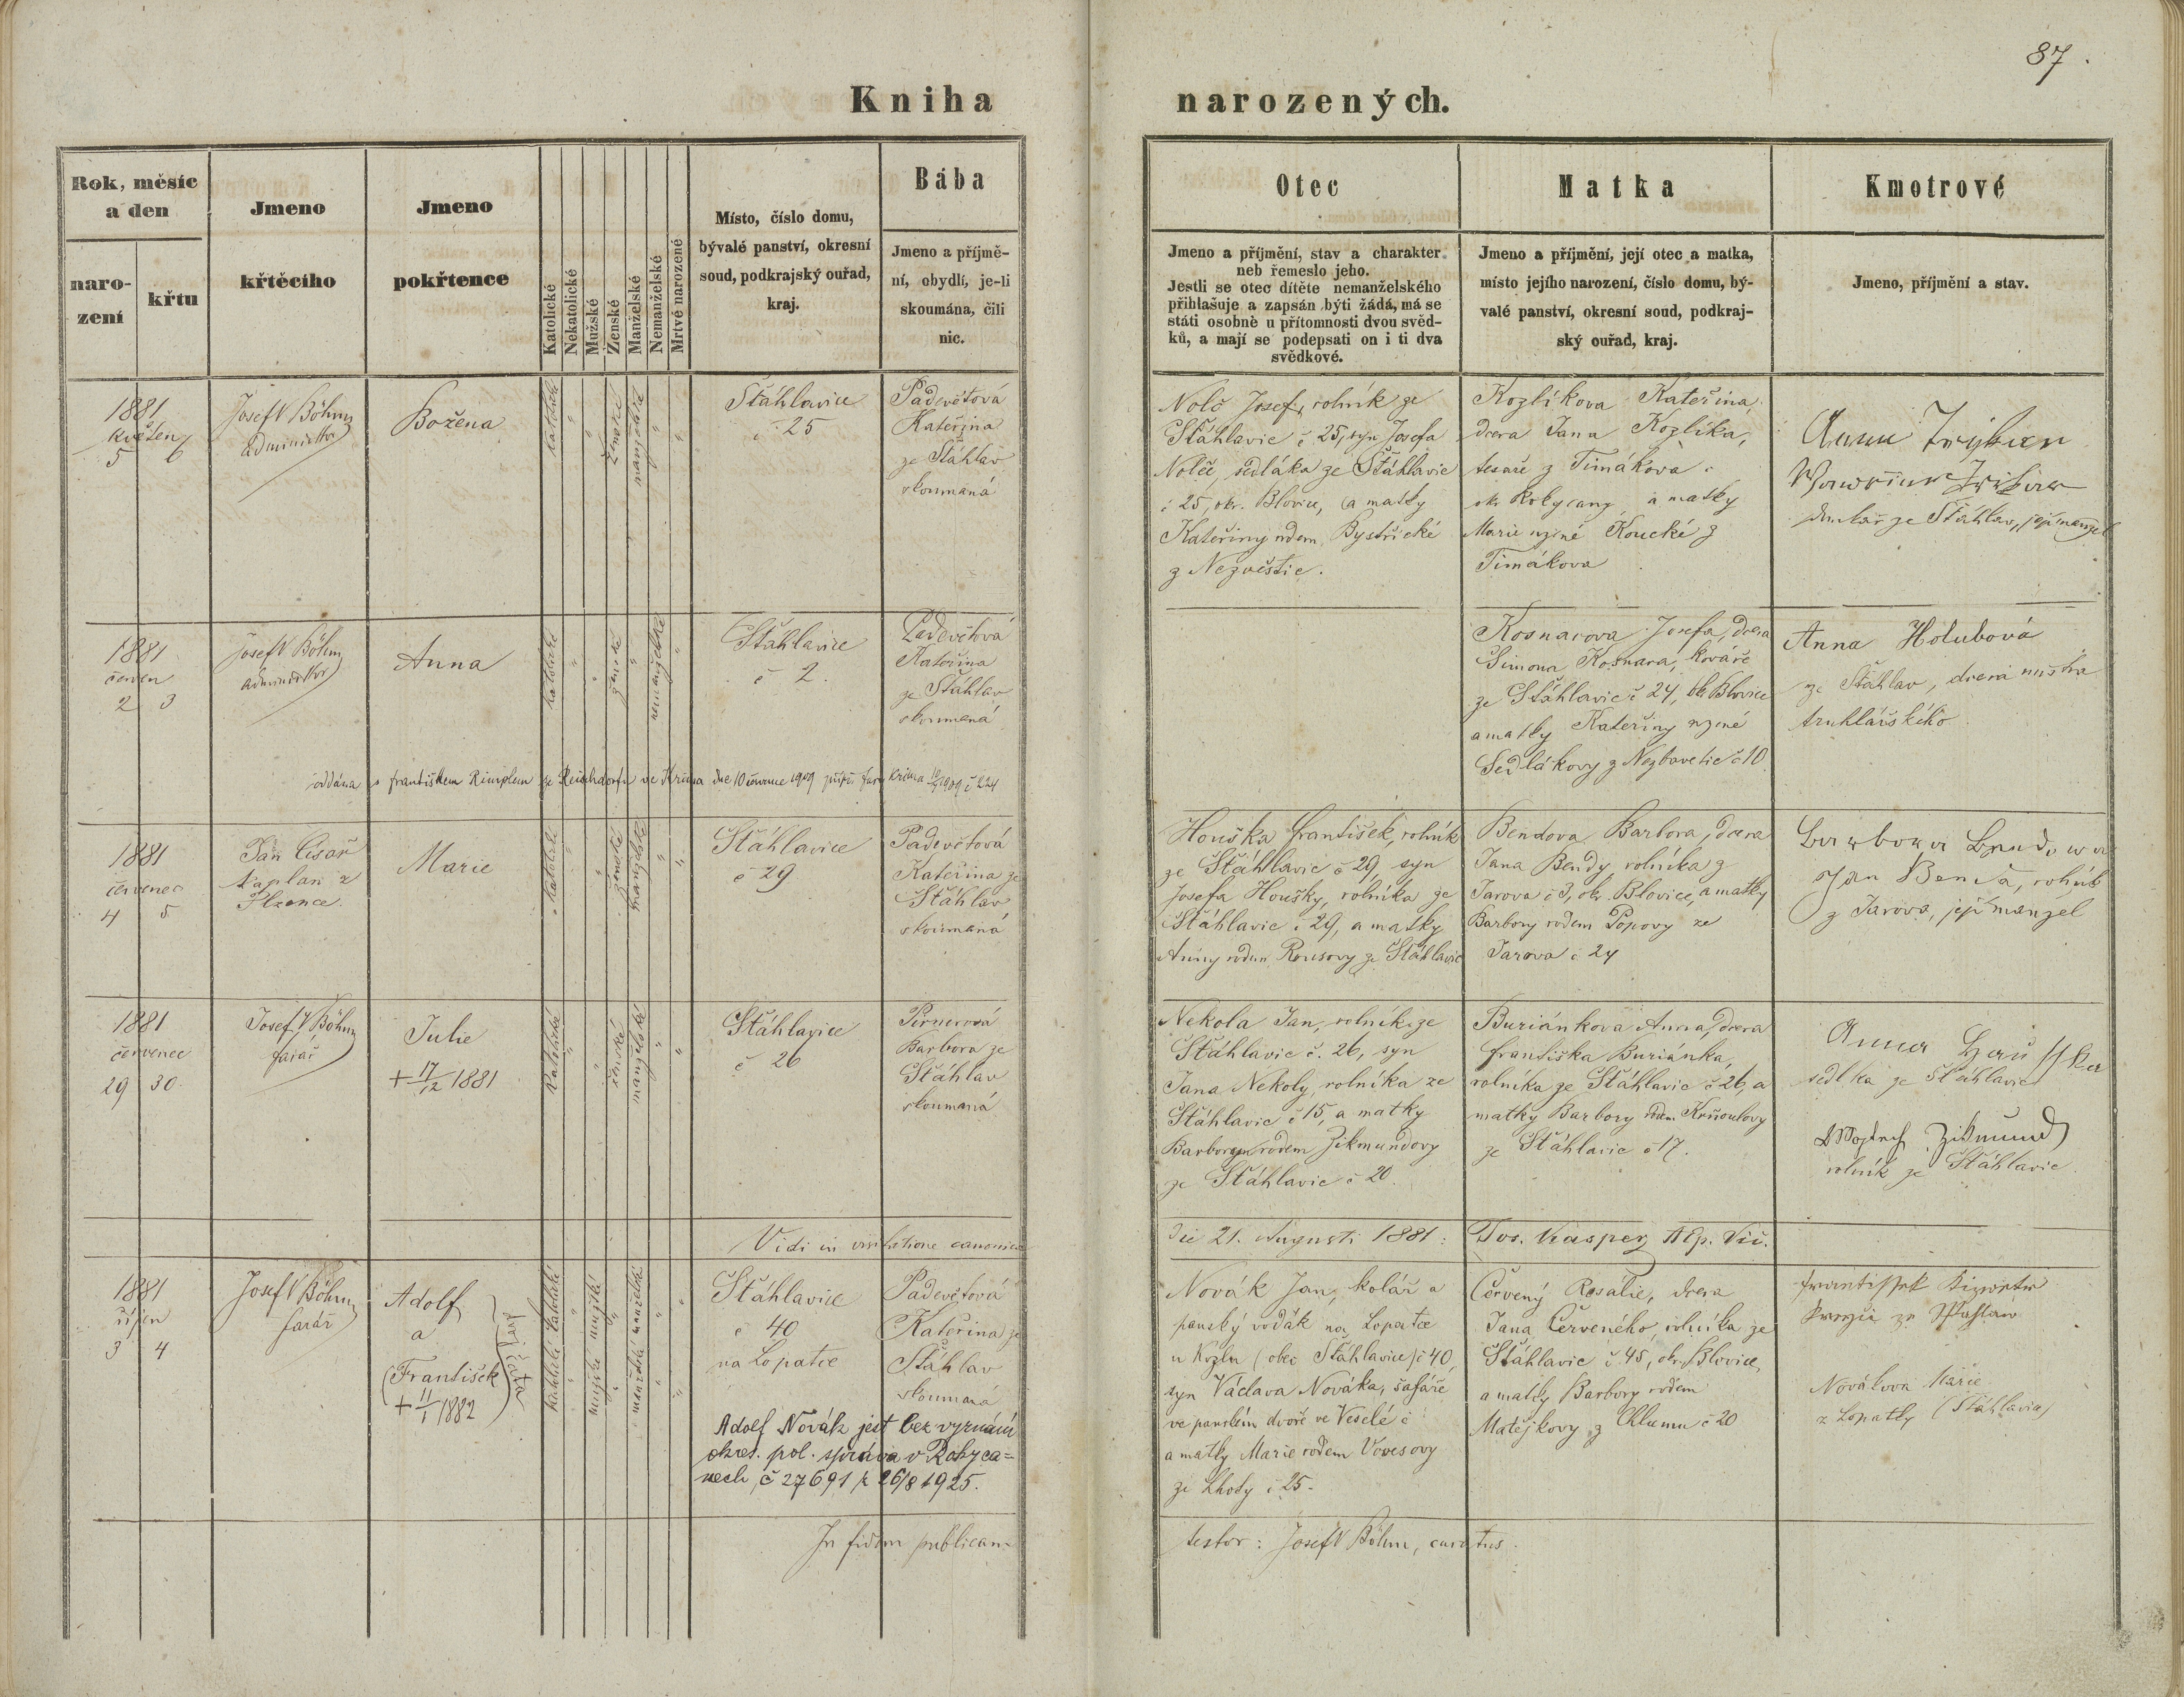 87.
Kniha narozených.
Rok, měsíc
a den
naro-
zení
křtu
Jmeno
křtěcího
Jmeno
pokřtence
Katolické
Nekatolické
Mužské
Ženské
Manželské
Nemanželské
Mrtvě narozené
Místo, číslo domu,
bývalé panství, okresní
soud, podkrajský ouřad,
kraj.
Bába
Jmeno a příjmě-
ní, obydlí, je-li
skoumána, čili
nic.
Otec
Jmeno a příjmění, stav a charakter
neb řemeslo jeho.
Jestli se otec dítěte nemanželského
přihlašuje a zapsán býti žádá, má se
státi osobně u přítomnosti dvou svěd-
ků, a mají se podepsati on i ti dva
svědkové.
Matka
Jmeno a příjmění, její otec a matka,
místo jejího narození, číslo domu, bý-
valé panství, okresní soud, podkraj-
ský ouřad, kraj.
Kmotrové
Jmeno, příjmění a stav.
1881
květen
5 6
Josef V Böhm
administrator
Božena
katolické
ženské
manželské
Šťáhlavice
č 25
Padevětová
Kateřina
ze Šťáhlav
skoumaná
Nolč Josef, rolník ze
Šťáhlavic č 25, syn Josefa
Nolče, sedláka ze Šťáhlavic
č 25, okr. Blovice, a matky
Kateřiny rodem Bystřické
z Nezvěstic.
Kozlíkova Kateřina,
dcera Jana Kozlíka,
tesaře z Timákova
okr Rokycany, a matky
Marie rozené Koucké z
Timákova
Anna
ze Šťáhlav, její manžel
1881
červen
2 3
Josef V Böhm
administrator
Anna
katolické
ženské
nemanželské
Šťáhlavice
č 2.
Padevětová
Kateřina
ze Šťáhlav
skoumaná
Kosnarova Josefa, dcera
Šimona Kosnara, kováře
ze Šťáhlavic č 24, okr Blovice
a matky Kateřiny rozené
Sedlákovy z Nezbavětic č 10
Anna Holubová
ze Šťáhlav, dcera mistra
truhlářského
oddána s Františkem Rimplem ze Reichdorfu ve Krima dne 10 července 1909 přípi. fary Krima 10/7 1909 č 224
1881
červenec
4 5
Jan Císař
kaplan z
Plzence.
Marie
katolické
ženské
manželské
Šťáhlavice
č 29
Padevětová
Kateřina ze
Šťáhlav
skoumaná
Houška František, rolník
ze Šťáhlavic č 29, syn
Josefa Houšky, rolníka ze
Šťáhlavic č 29, a matky
Anny rodem Rousovy ze Šťáhlavic
Bendova Barbora, dcera
Jana Bendy, rolníka z
Jarova č 3, okr. Blovice, a matky
Barbory rodem Popovy ze
Jarova č 24
Barbora Bendova
Jan Benda, rolník
z Jarova, její manžel
1881
červenec
29 30
Josef V Böhm
farář
Julie
+ 17/12 1881
katolické
ženské
manželské
Šťáhlavice
č 26
Pirnerová
Barbora ze
Šťáhlav
skoumaná
Nekola Jan, rolník ze
Šťáhlavic č. 26, syn
Jana Nekoly, rolníka ze
Šťáhlavic č 15, a matky
Barbory rodem Zikmundovy
ze Šťáhlavic č 20.
Buriánkova Anna, dcera
Františka Buriánka,
rolníka ze Šťáhlavic č 26, a
matky Barbory rodem Krňoulovy
ze Šťáhlavic č 17.
Anna Hauſſka
sedlka ze Šťáhlavic
Wojtěch Zikmund
rolník ze Šťáhlavic
Vidi in visitatione canonica die 21. Augusti 1881: Jos. Kasper Aep. Vic.
1881
říjen
3 4
Josef V Böhm
farář
Adolf
a
(František
+ 11/1 1882
dvojčata
katolické katolické
mužské mužské
manželské manželské
Šťáhlavice
č 40
na Lopatce
Padevětová
Kateřina ze
Šťáhlav
skoumaná
Adolf Novák jest bez vyznání
okres. pol. správa v Rokyca=
nech, č 27691 z 26/8 1925.
Novák Jan, kolář a
panský vodák na Lopatce
u Kozlu (obec Šťáhlavice) č 40,
syn Václava Nováka, šafáře
ve panském dvoře ve Veselé č
a matky Marie rodem Vovesovy
ze Lhoty č 25.
Červený Rosalie, dcera
Jana Červeného, rolníka ze
Šťáhlavic č 45, okr. Blovice,
a matky Barbory rodem
Matějkovy z Chlumu č 20
Frantiſſek
Nováková Marie
z Lopatky (Šťáhlavice)
In fidem publicam testor: Josef V Böhm, curatus.